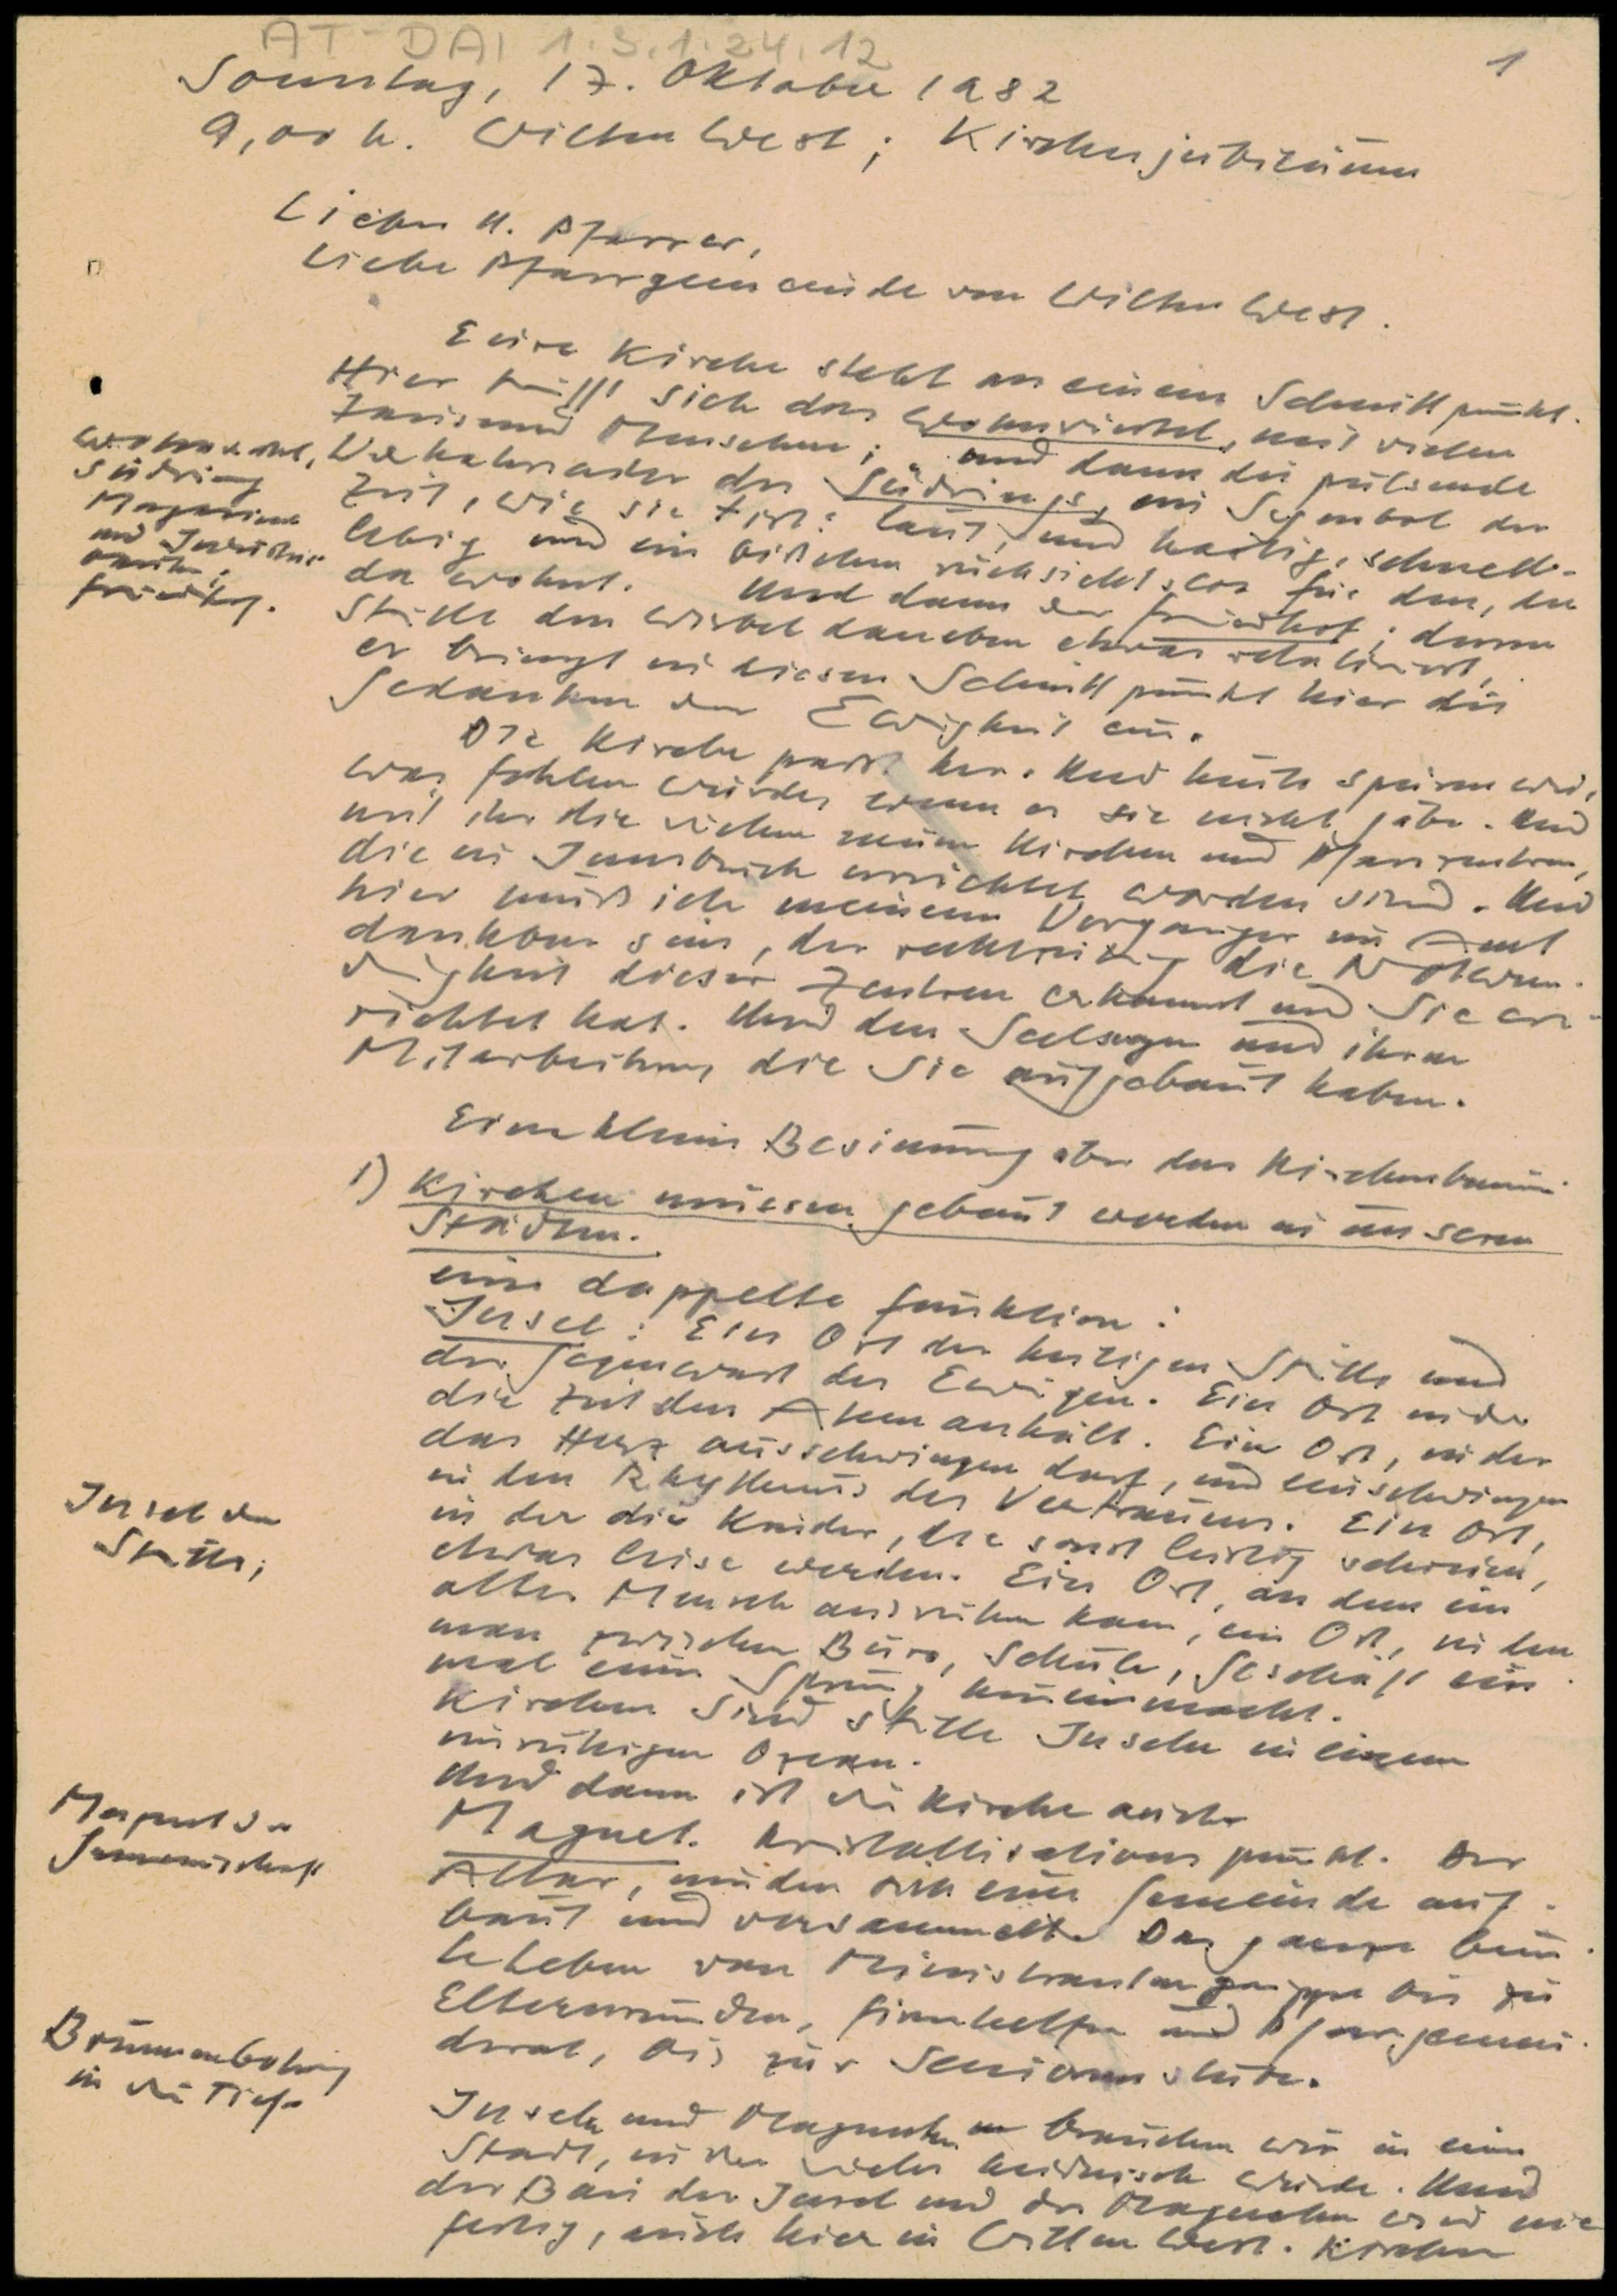 AT-DAI 1.3.1.24.12
1
Sonntag, 17. Oktober 1982
9,00 h. Wilten West; Kirchenjubiläum
Lieber H. Pfarrer,
liebe Pfarrgemeinde von Wilten West.
Eure Kirche steht an einem Schnittpunkt.
Hier trifft sich das Wohnviertel, mit vielen
tausend Menschen; und dann die pulsende
Verkehrsader des Südrings, ein Symbol der
Zeit, wie sie ist: laut, und hastig, schnell-
lebig und ein bißchen rücksichtslos für den, der
da wohnt. Und dann der Friedhof; dessen
Stille den Wirbel daneben etwas relativiert,
er bringt in diesen Schnittpunkt hier die
Gedanken der Ewigkeit ein.
Wohnviertel,
Südring
Magazine
und
Friedhof.
Die Kirche paßt her. Und heute spüren wir,
was fehlen würde, wenn es sie nicht gäbe. Und
mit ihr die vielen neuen Kirchen und Pfarrzentren,
die in Innsbruck errichtet worden sind. Und
hier muß ich meinem Vorgänger im Amt
dankbar sein, der rechtzeitig die Notwen-
digkeit dieser Zentren erkannt und sie er-
richtet hat. Und den Seelsorgern und ihren
Mitarbeitern, die sie aufgebaut haben.
Eine kleine Besinnung über den Kirchenbau:
1) Kirchen müssen gebaut werden in unseren
Städten.
eine doppelte Funktion:
Insel: Ein Ort der heiligen Stille und
der Gegenwart des Ewigen. Ein Ort in der
die Zeit den Atem anhält. Ein Ort, in der
das Herz ausschwingen darf, und einschwingen
in den Rhythmus des Vertrauens. Ein Ort,
in der die Kinder, die sonst lustig schreien,
etwas leise werden. Ein Ort, an dem ein
alter Mensch ausruhen kann, ein Ort, in den
man zwischen Büro, Schule, Geschäft ein-
mal einen Sprung hineinmacht.
Kirchen sind stille Inseln in einem
unruhigen Ozean.
Insel der
Stille;
Und dann ist die Kirche auch
Magnet. Kristallisationspunkt. Der
Altar, um den sich eine Gemeinde auf-
baut und versammelt. Das ganze bun-
te Leben von Ministrantengruppe bis zu
Elternrunden, Firmhelfer und Pfarrgemein-
derat, bis zur Seniorenstube.
Magnet der
Gemeinschaft
Brunnenbohrung
in die Tiefe
Inseln und Magneten brauchen wir in einer
Stadt, in der vieles heidnisch wurde. Und
der Bau der Insel und des Magneten wird nie
fertig, auch hier in Wilten West. Kirchen